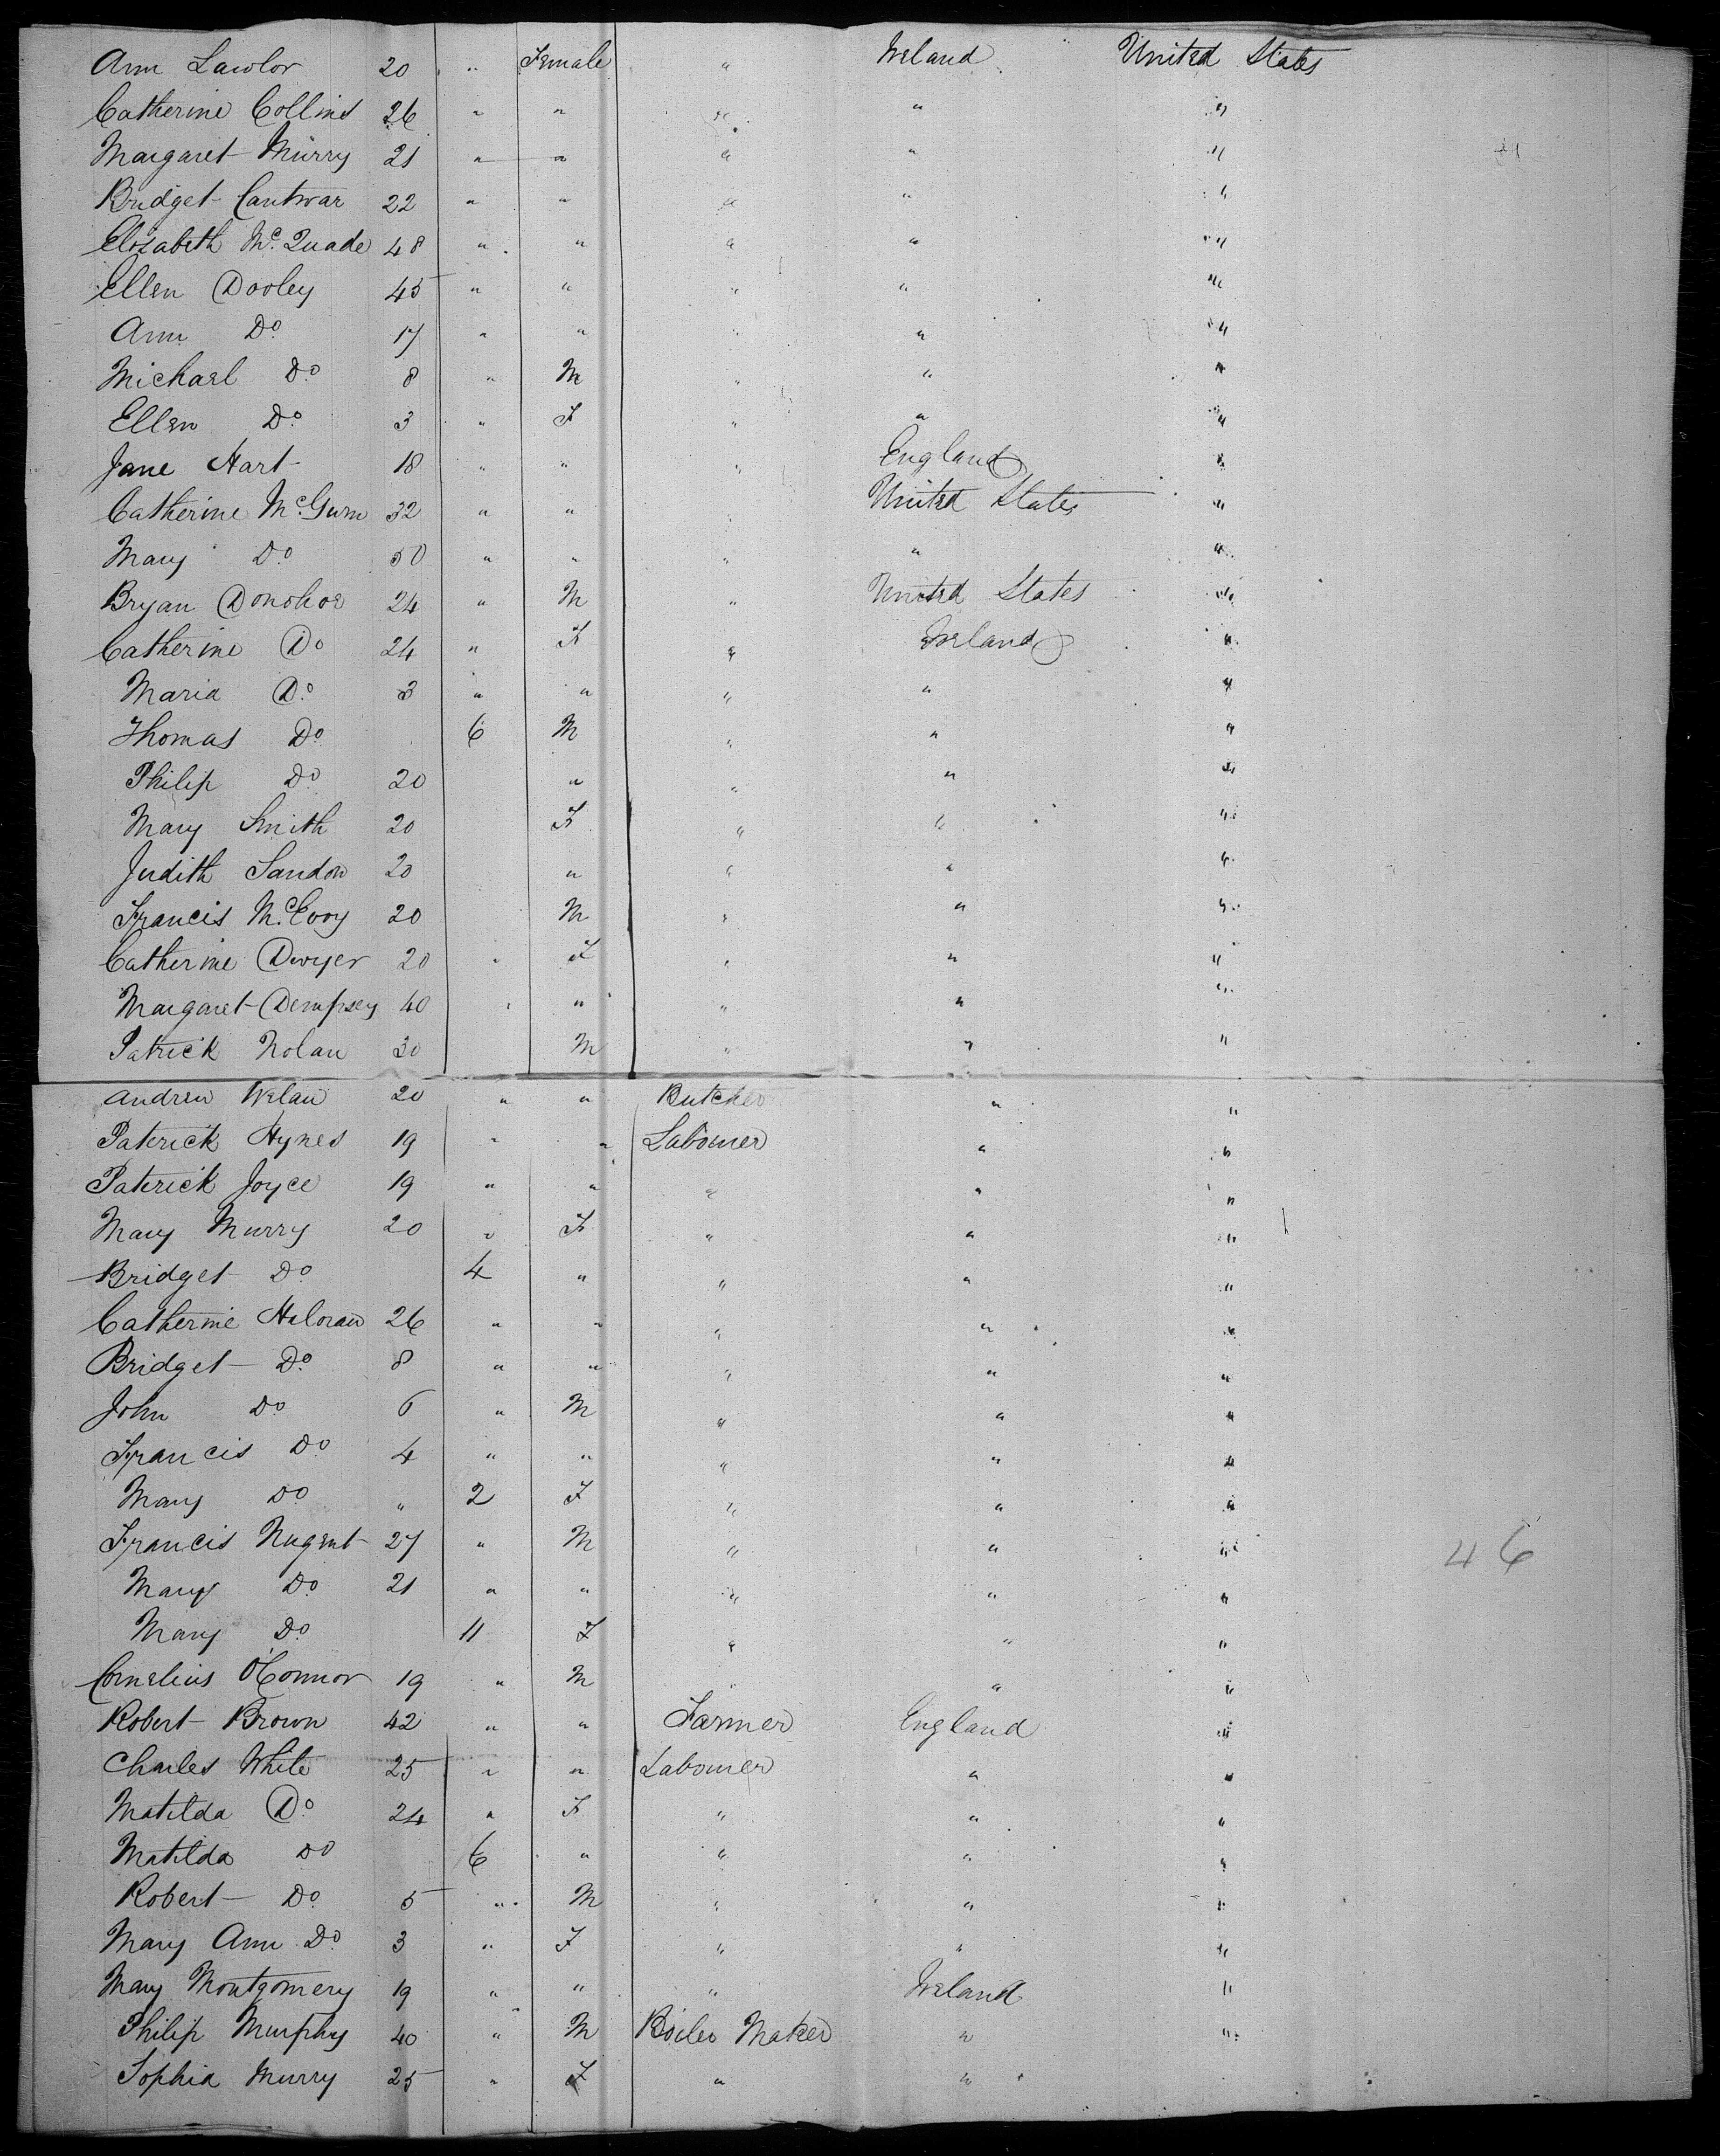 Ann Lawlor 20 " Female " Ireland United States
Catherine Collins 26 " " " " "
Margaret Murry 21 " " " " "
Bridget Cantwar 22 " " " " "
Elizabeth Mc. Quade 48 " " " " "
Ellen Dooley 45 " " " " "
Ann Do 17 " " " " "
Michael Do 8 " M " " "
Ellen Do 3 " F " " "
Jane Hart 18 " " " England "
Catherine Mc. Gurn 32 " " " United States "
Mary Do 50 " " " " "
Bryan Donohoe 24 " M " United States "
Catherine Do 24 " F " Ireland "
Maria Do 3 " " " " "
Thomas Do 6 M " " "
Philip Do 20 " " " "
Mary Smith 20 F " " "
Judith Sandon 20 " " " "
Francis Mc. Evoy 20 M " " "
Catherine Dwyer 20 " F " " "
Margaret Dempsey 40 " " " " "
Patrick Nolan 30 M " " "
Andrew Welan 20 " " Butcher " "
Paterick Hynes 19 " " Labourer " "
Paterick Joyce 19 " " " " "
Mary Murry 20 " F " " "
Bridget Do 4 " " " "
Catherine Haloran 26 " " " " "
Bridget Do 8 " " " " "
John Do 6 " M " " "
Francis Do 4 " " " " "
Mary Do " 2 F " " "
Francis Nugent 27 " M " " " 46
Mary Do 21 " " " " "
Mary Do 11 F " " "
Cornelius O'Connor 19 " M " " "
Robert Brown 42 " " Farmer England "
Charles White 25 " " Labourer " "
Matilda Do 24 " F " " "
Matilda Do 6 " " " "
Robert Do 5 " M " " "
Mary Ann Do 3 " F " " "
Mary Montgomery 19 " " " Ireland "
Philip Murphy 40 " M Boiler Maker " "
Sophia Murry 25 " F " "